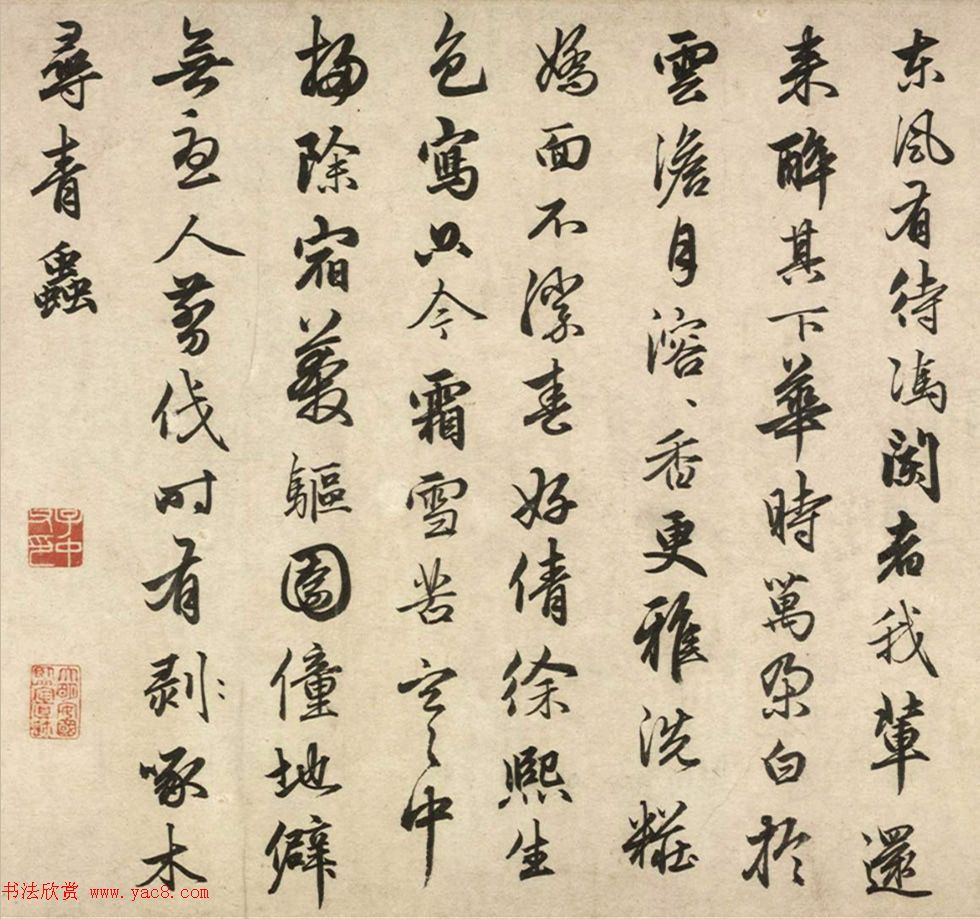 東風有待馮闌者我輩還
来醉其下華時萬朶白於
雲澹月溶、香更雅洗糚
面不春好倩徐熙生
色寫只今霜雪苦中
掃除宿驅園僮地僻
無恐人剪伐时有剥:啄木
尋青蟲
书法欣赏 www.yac8.com